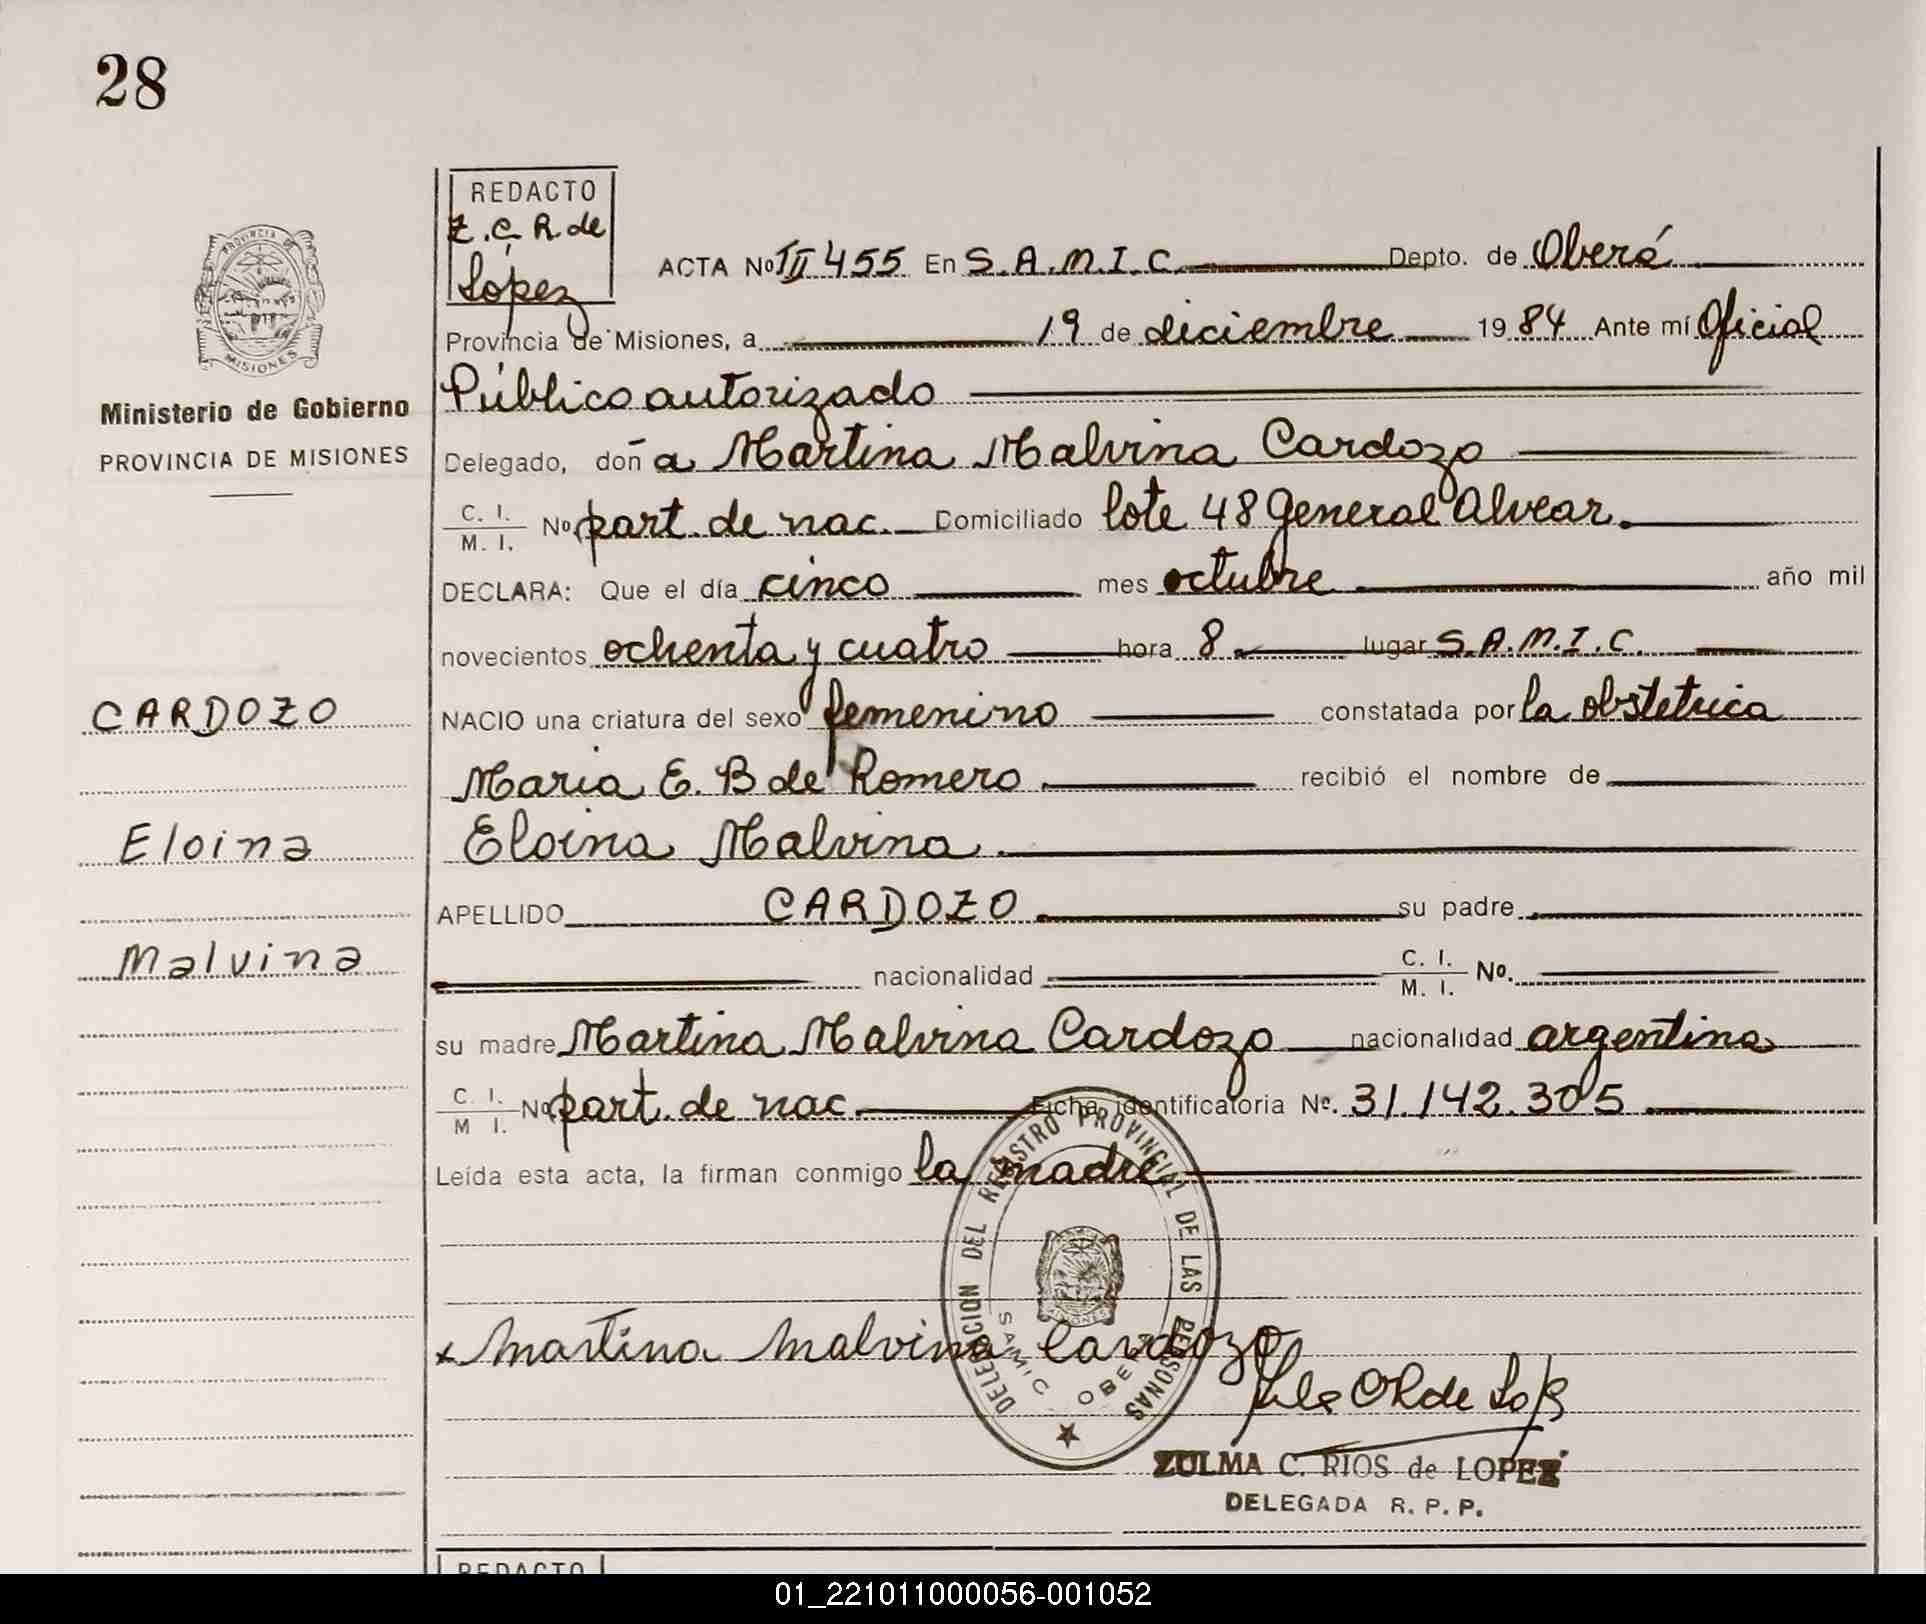 28
REDACTO
Z. C. R. de
López
PROVINCIA DE
MISIONES
Ministerio de Gobierno
PROVINCIA DE MISIONES
ACTA No III 455 En S.A.M.I.C. Depto. de Oberá
Provincia de Misiones, a 19 de diciembre 1984 Ante mí Oficial
Público autorizado
Delegado, doña Martina Malvina Cardozo
C. I. / M. I. No. part. de nac. Domiciliado lote 48 General Alvear.
DECLARA: Que el día cinco mes octubre año mil
novecientos ochenta y cuatro hora 8 lugar S.A.M.I.C.
CARDOZO
NACIO una criatura del sexo femenino constatada por la obstetrica
Maria E. B de Romero recibió el nombre de
Eloina
Eloina Malvina.
APELLIDO CARDOZO su padre
Malvina
nacionalidad C. I. / M. I. No.
su madre Martina Malvina Cardozo nacionalidad argentina
C. I. / M I. No. part. de nac. Ficha identificatoria No. 31.142.305
Leída esta acta, la firman conmigo la madre
DELEGACION DEL REGISTRO PROVINCIAL DE LAS PERSONAS
SAMIC OBERA
x Martina Malvina Cardozo
ZULMA C. RIOS de LOPEZ
DELEGADA R. P. P.
REDACTO
01_221011000056-001052